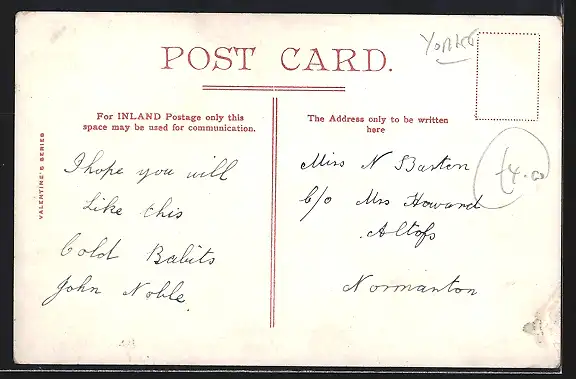 Yorks
POST CARD.
For INLAND Postage only this
space may be used for communication.
The Address only to be written
here
VALENTINE'S SERIES
I hope you will
Like this
Cold Babits
John Noble.
Miss N Barton
C/o Mrs Howard
Altofs
Normanton
£4.00